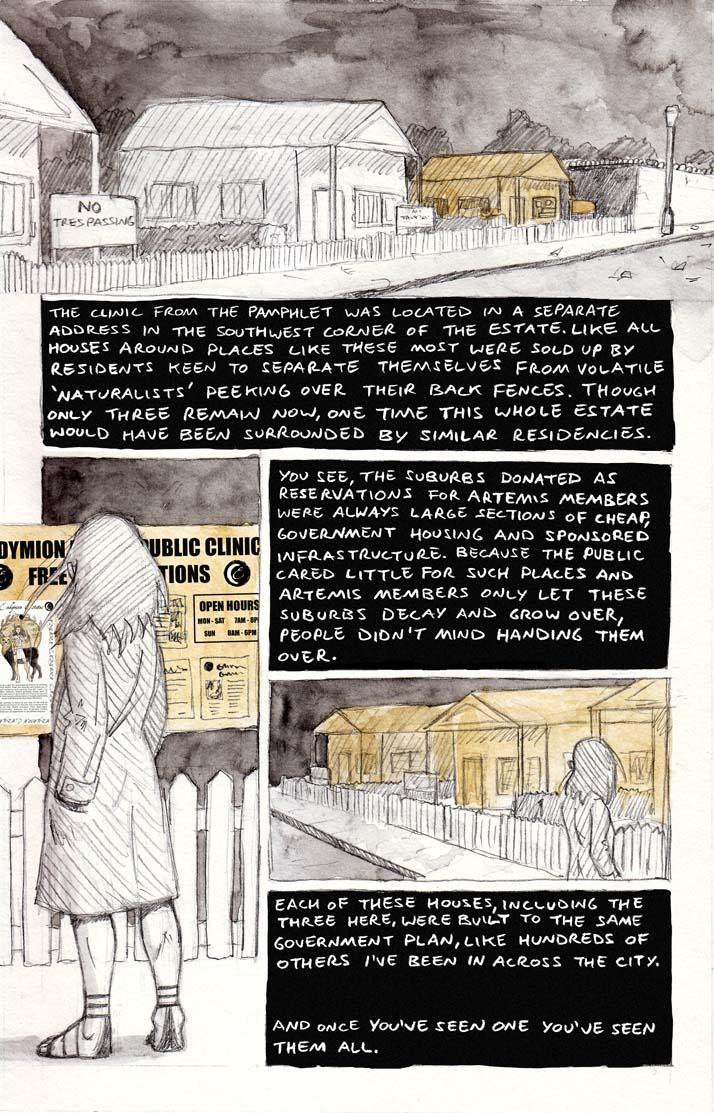 NO
TRESPASSING
NO
THE CLINIC FROM THE PAMPHLET WAS LOCATED IN A SEPARATE
ADDRESS IN THE SOUTHWEST CORNER OF THE ESTATE. LIKE ALL
HOUSES AROUND PLACES LIKE THESE MOST WERE SOLD UP BY
RESIDENTS KEEN TO SEPARATE THEMSELVES FROM VOLATILE
'NATURALISTS' PEEKING OVER THEIR BACK FENCES. THOUGH
ONLY THREE REMAIN NOW, ONE TIME THIS WHOLE ESTATE
WOULD HAVE BEEN SURROUNDED BY SIMILAR RESIDENCIES.
DYMION PUBLIC CLINIC
FREE TIONS
OPEN HOURS
MON - SAT 7AM - 8P
SUN 8AM - 6PM
YOU SEE, THE SUBURBS DONATED AS
RESERVATIONS FOR ARTEMIS MEMBERS
WERE ALWAYS LARGE SECTIONS OF CHEAP,
GOVERNMENT HOUSING AND SPONSORED
INFRASTRUCTURE. BECAUSE THE PUBLIC
CARED LITTLE FOR SUCH PLACES AND
ARTEMIS MEMBERS ONLY LET THESE
SUBURBS DECAY AND GROW OVER,
PEOPLE DIDN'T MIND HANDING THEM
OVER.
EACH OF THESE HOUSES, INCLUDING THE
THREE HERE, WERE BUILT TO THE SAME
GOVERNMENT PLAN, LIKE HUNDREDS OF
OTHERS I'VE BEEN IN ACROSS THE CITY.
AND ONCE YOU'VE SEEN ONE YOU'VE SEEN
THEM ALL.